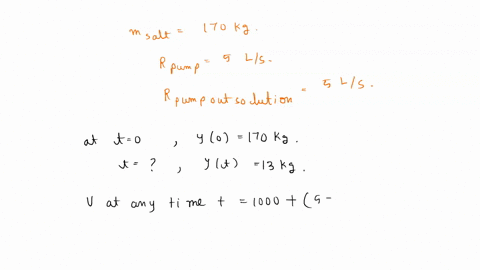 m salt = 170 kg.
R pump = 5 L/s.
R pump out solution = 5 L/s.
at t=0 , y(0) = 170 kg.
t = ? , y(t) = 13 kg.
V at any time t = 1000 + (5 -